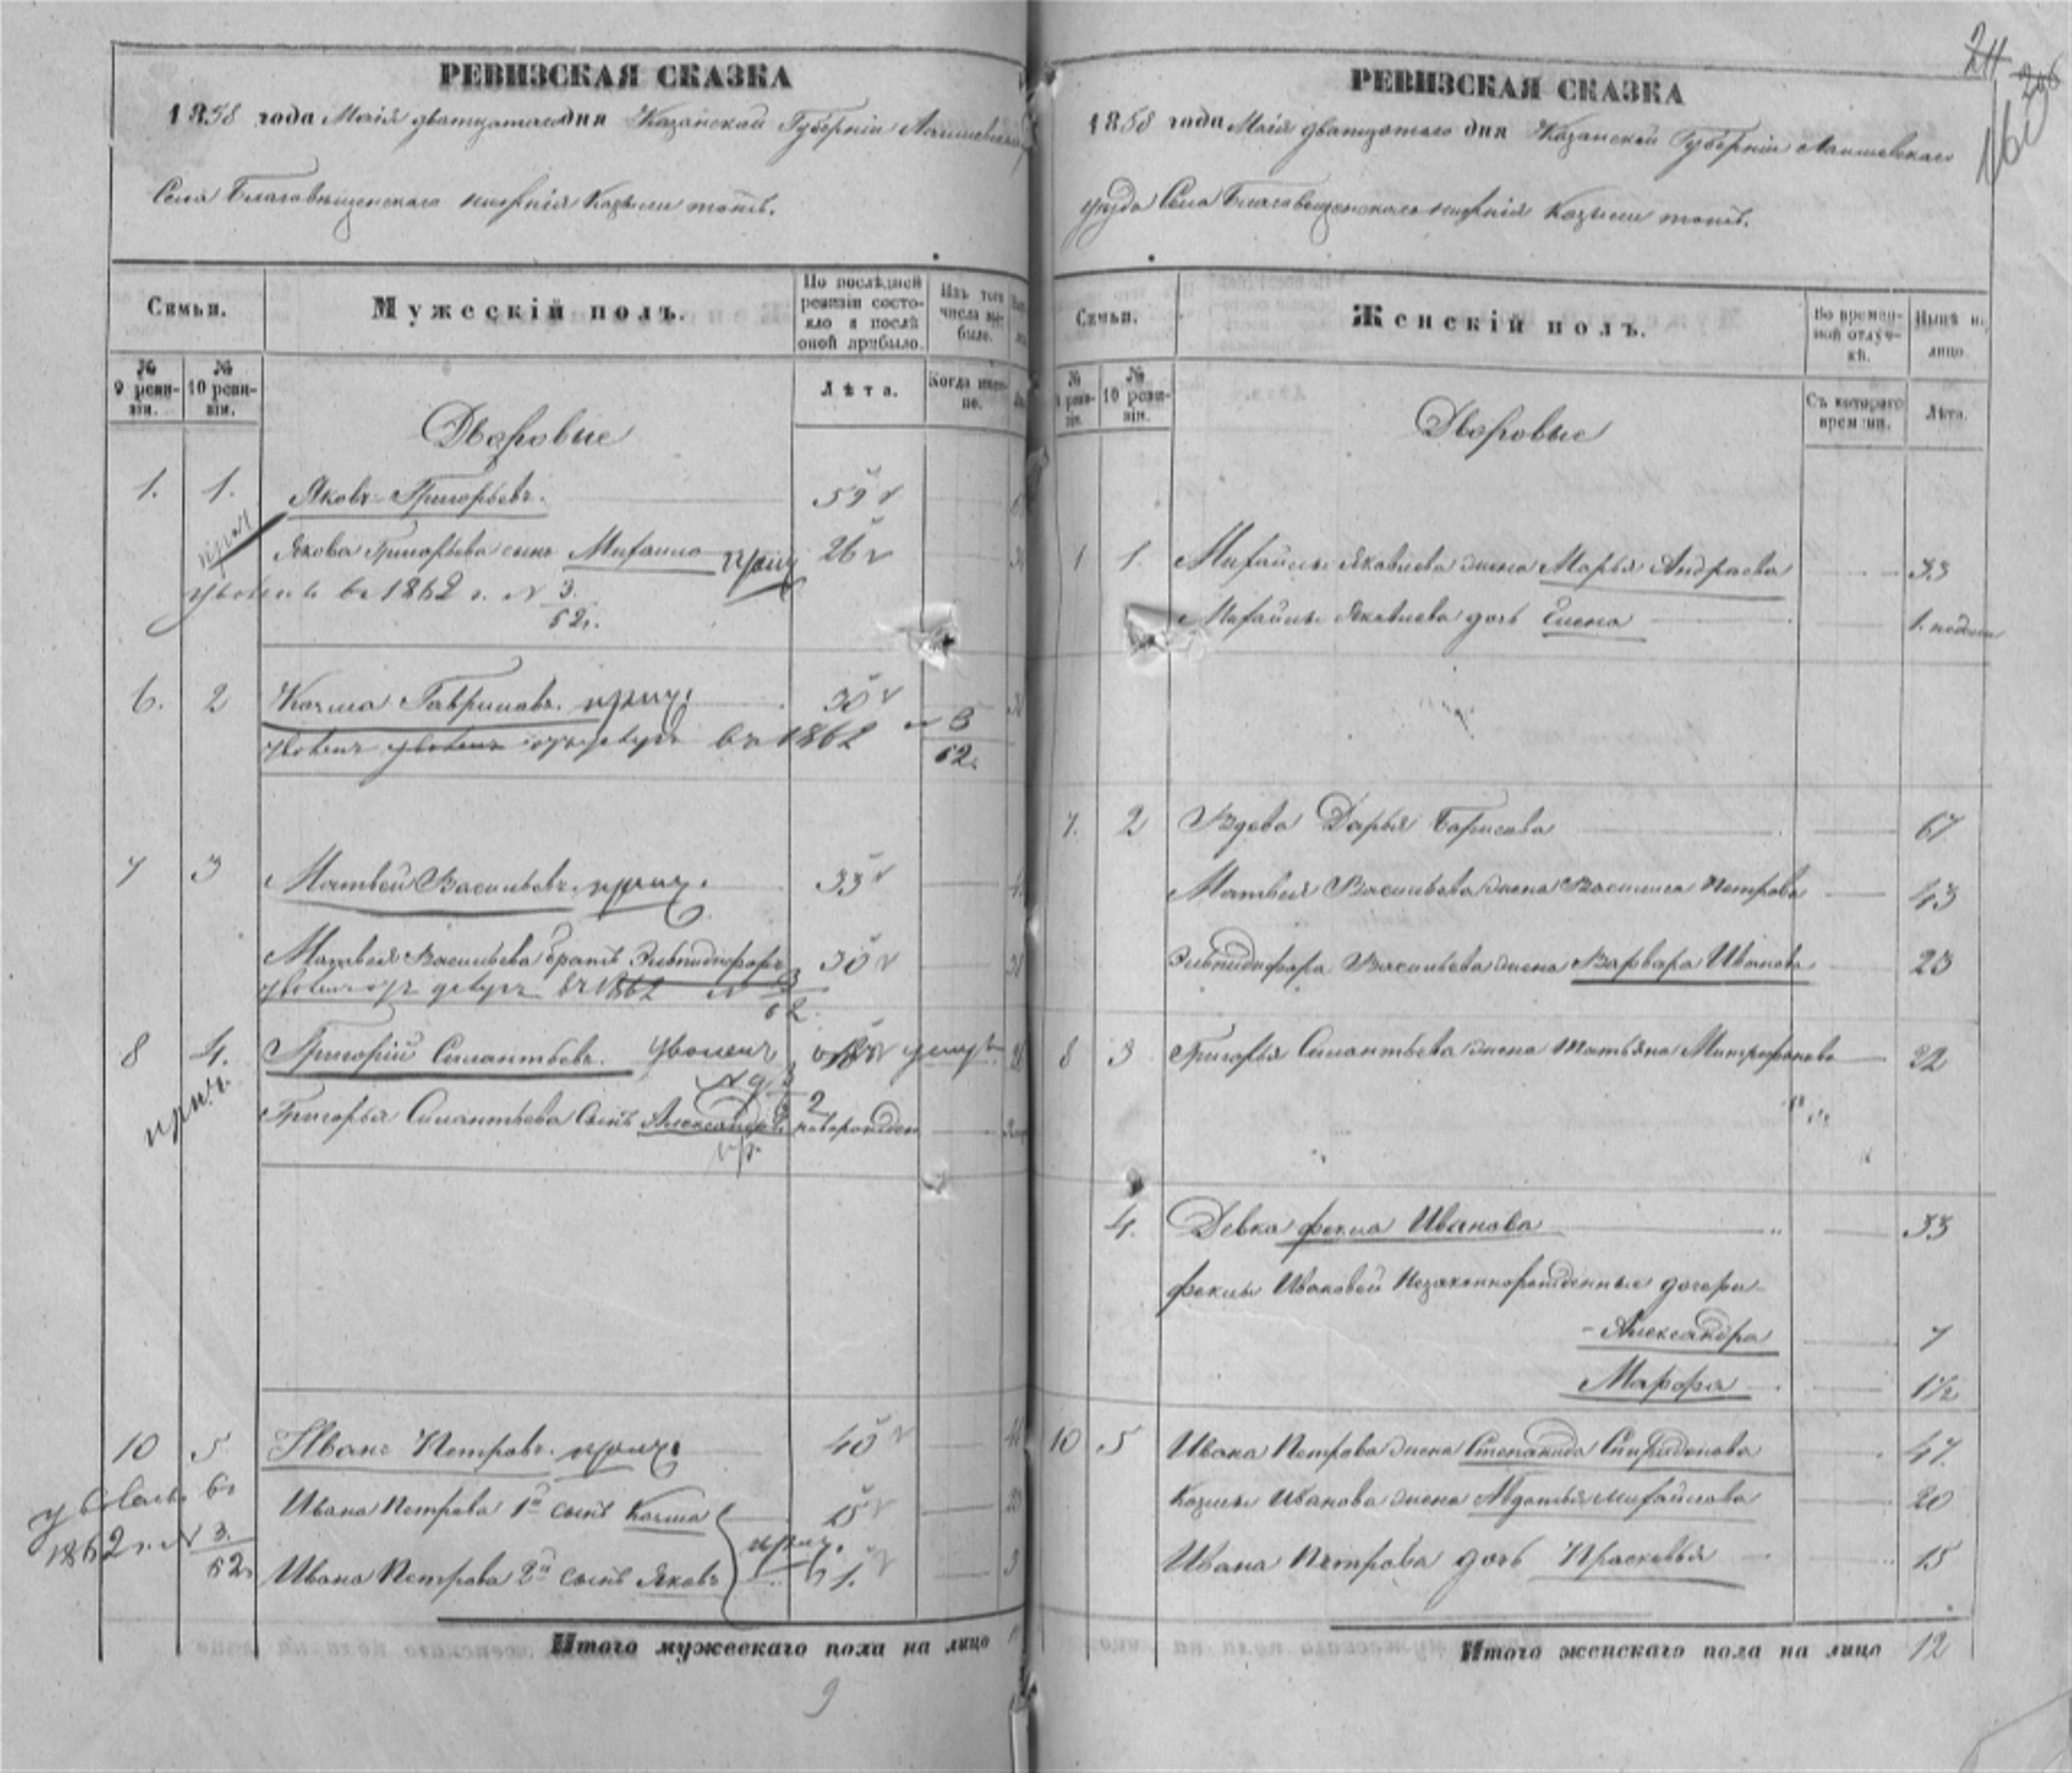 РЕВИЗСКАЯ СКАЗКА
1858 года Маія дватцатаго дня Казанской Губерніи Лаишевскаго
Села Благовѣщенскаго Козьми тожъ.
Семьи.
Мужескій полъ.
По послѣдней ревизіи состояло и послѣ оной прибыло.
Изъ того числа выбыло.
№ 9 ревизіи.
№ 10 ревизіи.
Лѣта.
Когда именно.
Дворовые
1. 1. Яковъ Григорьевъ. 59
Якова Григорьева сынъ Михаило 26
въ 1862 г. № 3/62.
6. 2 Козма Гавриловъ. 30
уволенъ въ 1862 № 3/62.
7 3 Матвей Васильевъ. 33
Матвея Васильева братъ Элпидифоръ 30
уволенъ въ 1862 № 3/62.
8 4. Григорій Силантьевъ. уволенъ 18
Григорья Силантьева сынъ Александръ новорожден
10 5 Иванъ Петровъ. 40
Ивана Петрова 1й сынъ Козма 15
въ 1862 г. № 3/62
Ивана Петрова 2й сынъ Яковъ 1.
Итого мужескаго пола на лицо
9
24
РЕВИЗСКАЯ СКАЗКА
1858 года Маія дватцатаго дня Казанской Губерніи Лаишевскаго
уезда Села Благовещенскаго Козьми тожъ.
Семьи.
Женскій полъ.
Во временной отлучкѣ.
Нынѣ на лицо.
№ ревизіи.
№ 10 ревизіи.
Съ котораго времени.
Лѣта.
Дворовые
1 1. Михайлы Яковлева жена Марья Андреева 33
Михайлы Яковлева дочь Елена 1. недели
7. 2 Вдова Дарья Борисова 67
Матвея Васильева жена Василиса Петрова 43
Элпидифора Васильева жена Варвара Иванова 23
8 3 Григорья Силантьева жена Татьяна Митрофанова 22
4. Девка Фекла Иванова 33
Феклы Ивановой Незаконнорожденные дочери
Александра 7
Марфа 1½
10 5 Ивана Петрова жена Степанида Спиридонова 47.
Козмы Иванова жена Авдотья Михайлова 20
Ивана Петрова дочь Прасковья 15
Итого женскаго пола на лицо 12